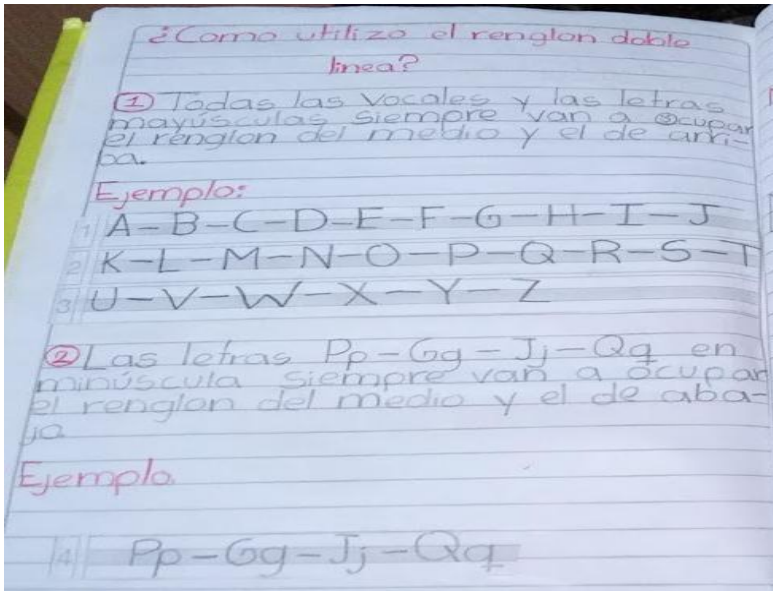 ¿Como utilizo el renglon doble
linea?
① Todas las vocales y las letras
mayúsculas siempre van a ocupar
el renglon del medio y el de arri-
ba.
Ejemplo:
1 A-B-C-D-E-F-G-H-I-J
2 K-L-M-N-O-P-Q-R-S-T
3 U-V-W-X-Y-Z
② Las letras Pp-Gg-Jj-Qq en
minúscula siempre van a ocupar
el renglon del medio y el de aba-
jo
Ejemplo
4 Pp-Gg-Jj-Qq